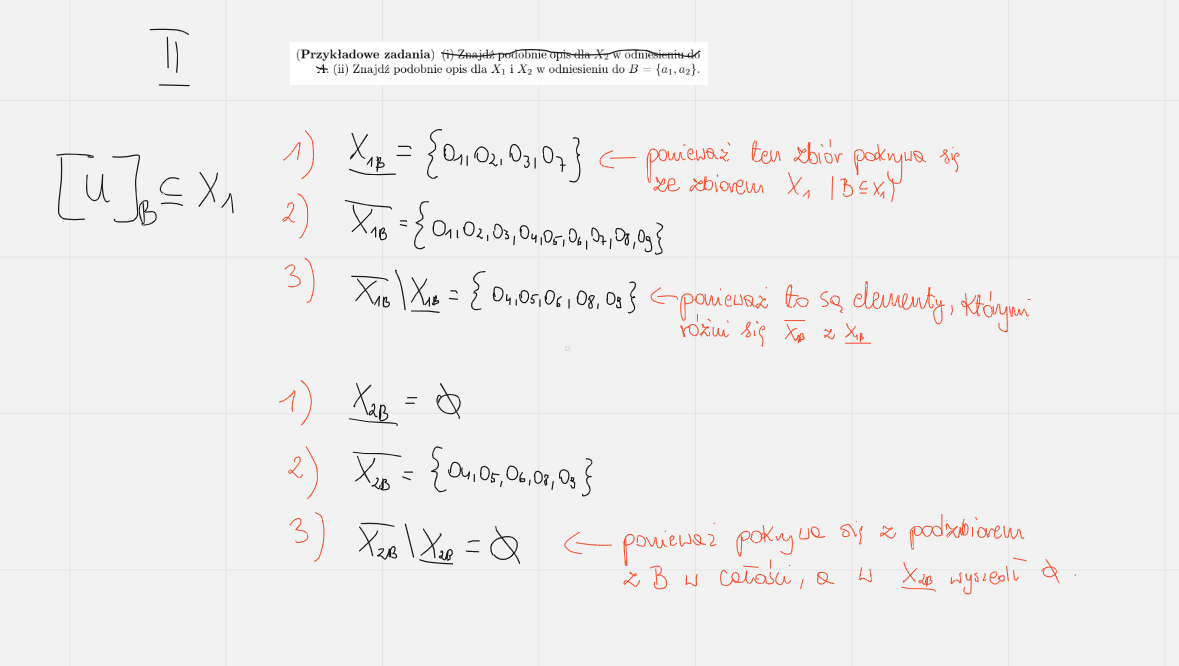 II
(Przykładowe zadania) (i) Znajdź podobnie opis dla X₂ w odniesieniu do
A. (ii) Znajdź podobnie opis dla X₁ i X₂ w odniesieniu do B = {a₁, a₂}.
[u]_B ⊆ X₁
1) X₁B = {O₁, O₂, O₃, O₇} ← ponieważ ten zbiór pokrywa się
ze zbiorem X₁ (B ⊆ X₁)
2) X₁B = {O₁, O₂, O₃, O₄, O₅, O₆, O₇, O₈, O₉}
3) X₁B \ X₁B = {O₄, O₅, O₆, O₈, O₉} ← ponieważ to są elementy, którymi
różni się X₁B z X₁B
1) X₂B = ∅
2) X₂B = {O₄, O₅, O₆, O₈, O₉}
3) X₂B \ X₂B = ∅ ← ponieważ pokrywa się z podzbiorem
z B w całości, a w X₂B wyszedł ∅.